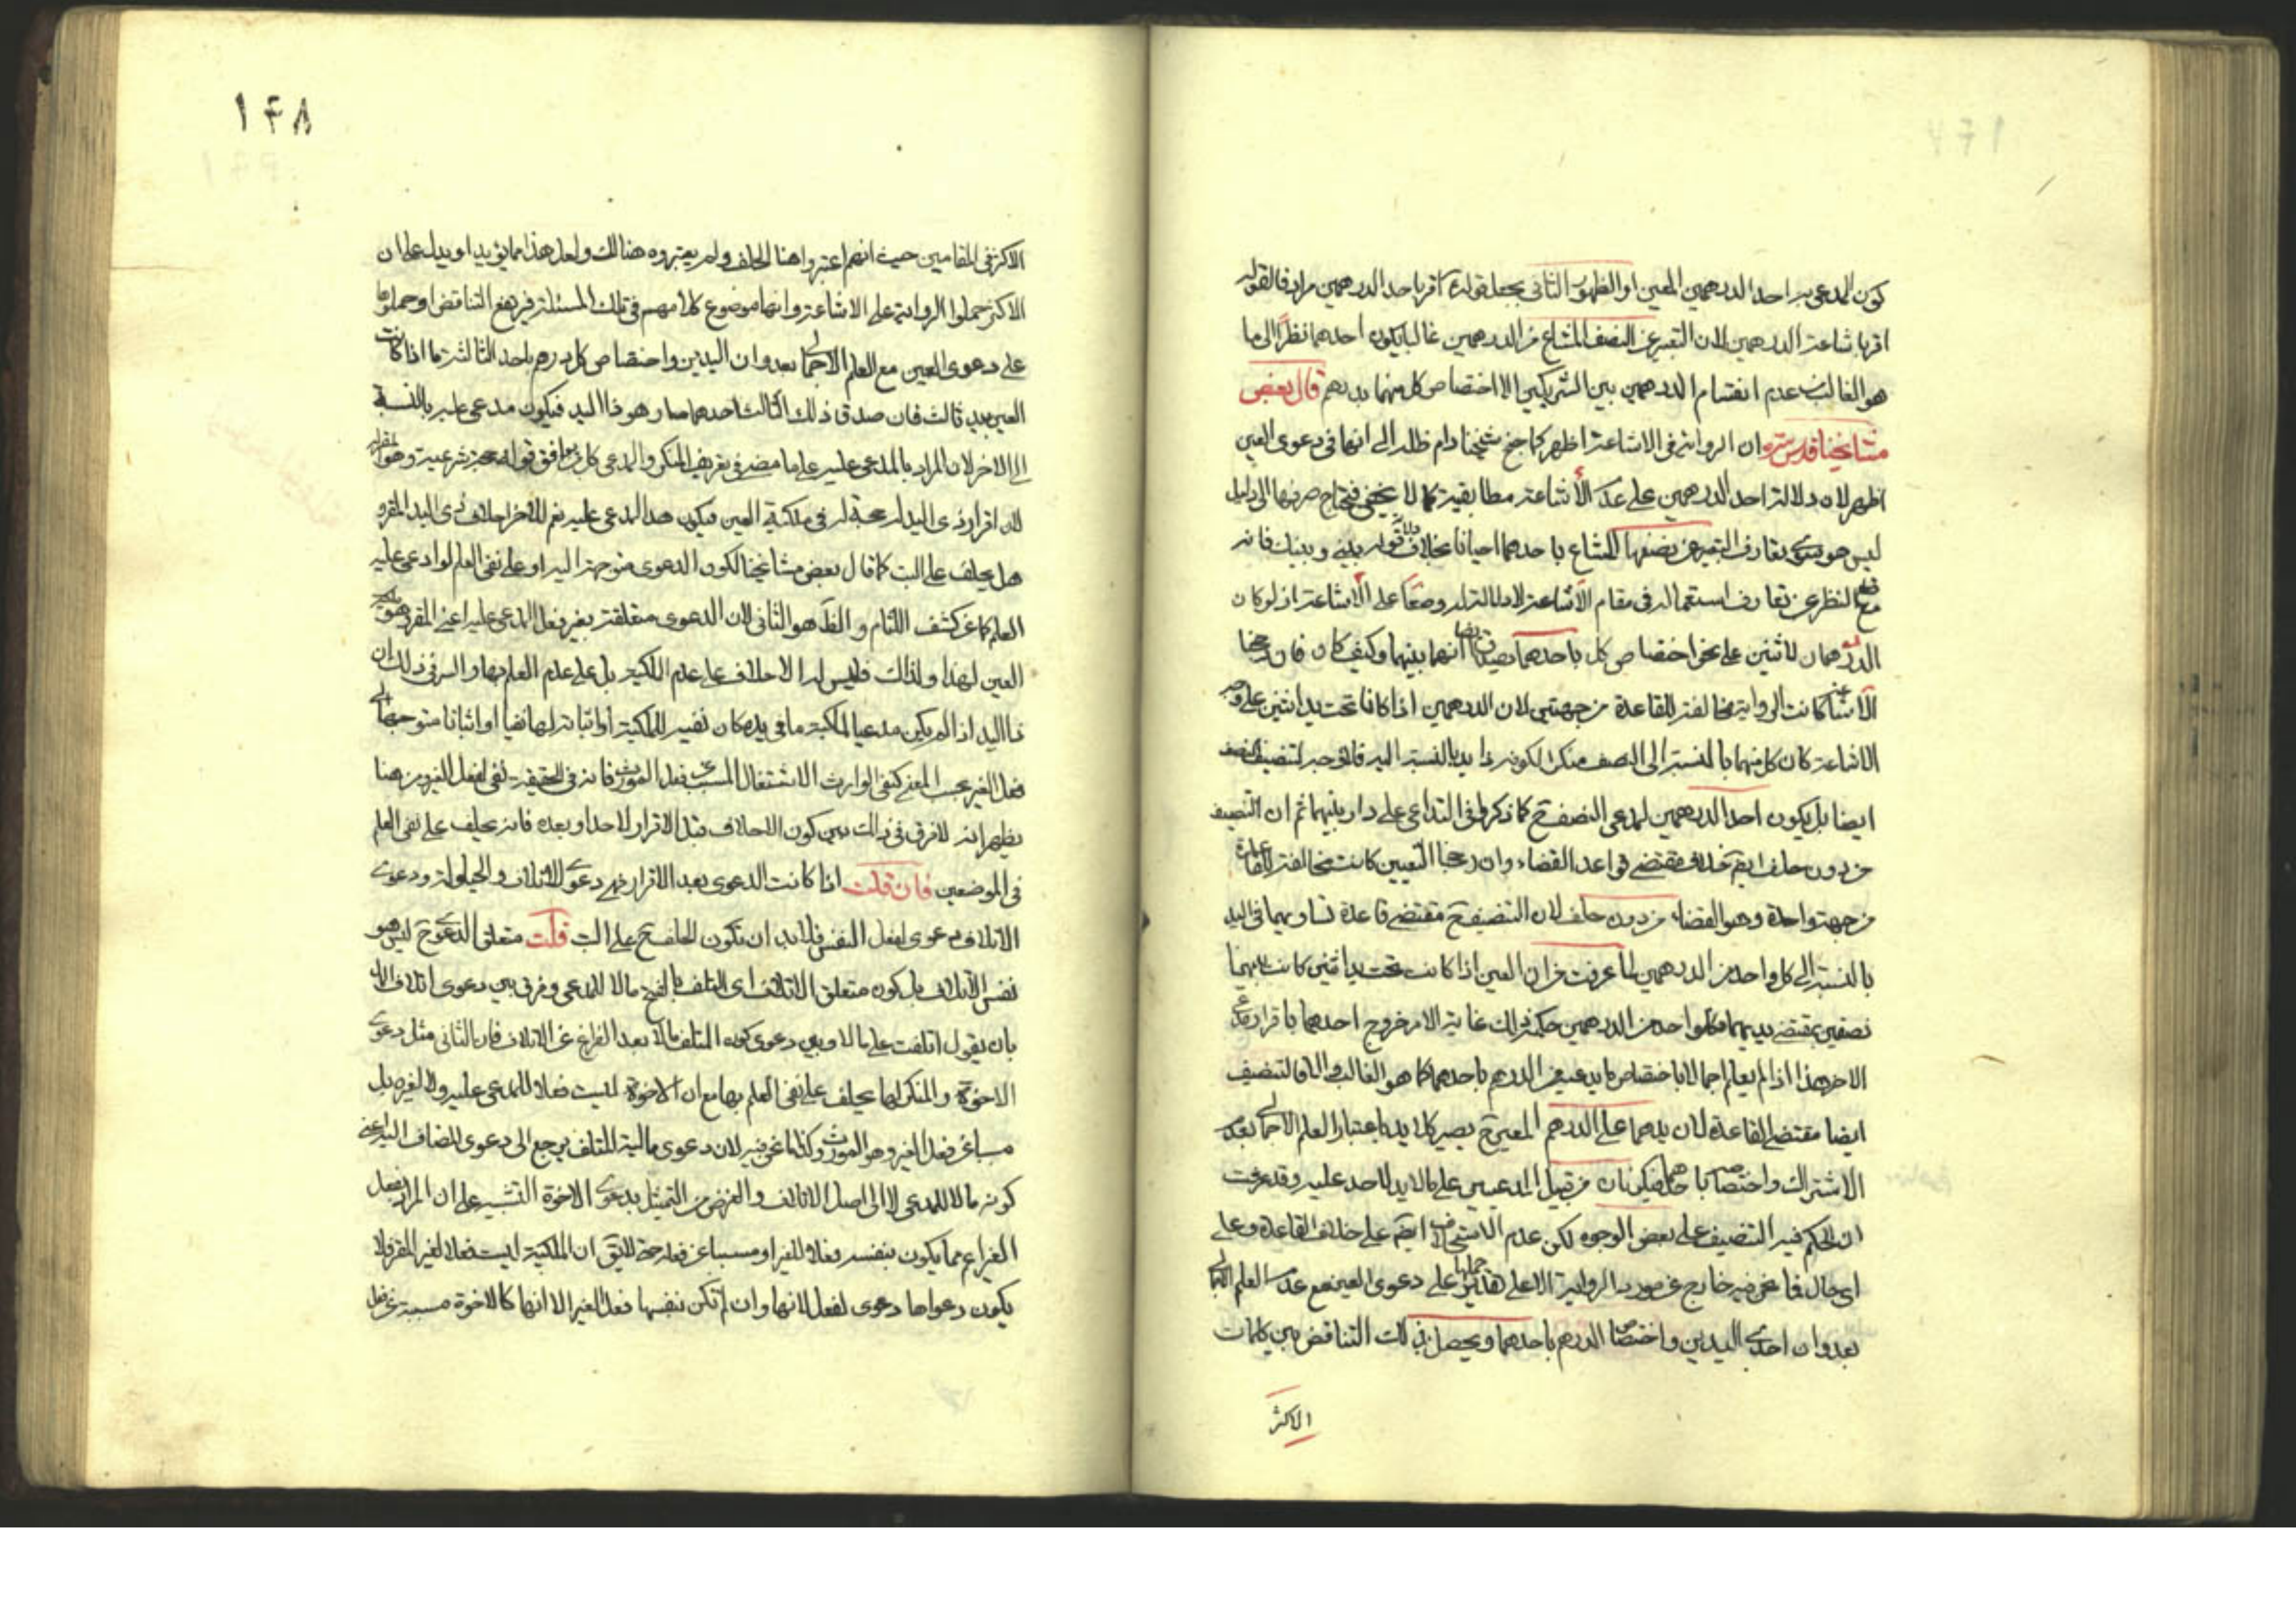 كون المدعى به احد الدرهمين المعين او الظهور الثانى بجعل قوله اقر باحد الدرهمين مرادفا لقوله
اقر باشاعة الدرهمين لان التعبير عن النصف المشاع من الدرهمين غالبا يكون احدهما نظرا الى ما
هو الغالب من عدم انقسام الدرهمين بين الشريكين الا اختصاص كل منهما بدرهم قال بعض
مشايخنا قدس سره ان الرواية فى الاشاعة اظهر كما جنح شيخنا دام ظله الى انها فى دعوى العين
اظهر لان دلالة احد الدرهمين على عدم الأشاعة مطابقية كما لا يخفى فيحتاج صرفها الى دليل
ليس هو سوى تعارف التعبير عن نصفها المشاع باحدهما احيانا بخلاف دلالة قوله بينى وبينك فانه
مع قطع النظر عن تعارف استعماله فى مقام الأشاعة لا دلالة له وضعا على الأشاعة اذ لو كان
الدرهمان لاثنين على نحو اختصاص كل باحدهما يصدق ايضا انهما بينهما وكيف كان فان رجحنا
الاشاعة كانت الرواية مخالفة للقاعدة من جهتين لان الدرهمين اذا كانا تحت يد اثنين على وجه
الاشاعة كان كل منهما بالنسبة الى النصف منكرا لكونه ذا يد بالنسبة اليه فلا وجه لتنصيف النصف
ايضا بل يكون احد الدرهمين لمدعى النصف ح كما ذكروا فى التداعى على دار بينهما ثم ان التنصيف
من دون حلف ايضا خلاف مقتضى قواعد القضاء وان رجحنا التعيين كانت مخالفة للقاعدة
من جهة واحدة وهو القضاء من دون حلف لان التنصيف ح مقتضى قاعدة تساويهما فى اليد
بالنسبة الى كل واحد من الدرهمين لما عرفت من ان العين اذا كانت تحت يد اثنين كانت بينهما
نصفين بمقتضى يديهما فكل واحد من الدرهمين حكمه ذلك غاية الامر خروج احدهما باقرار مدعى
الاخر هذا اذا لم يعلم اجمالا باختصاص ما يدعيه من الدرهم باحدهما كما هو الغالب والا فالتنصيف
ايضا مقتضى القاعدة لان يدهما على الدرهم المعين ح يصير كلا يد باعتبار العلم الاجمالى بعدم
الاشتراك واختصاصه باحدهما فيكونان من قبيل المدعيين على ما لا يد لاحد عليه وقد عرفت
ان الحكم فيه التنصيف على بعض الوجوه لكن عدم الاستحلاف ايضا على خلاف القاعدة وعلى
اى حال فما نحن فيه خارج عن مورد الرواية الا على تقدير حملها على دعوى العين مع عدم العلم الاجمالى
بعدوان احدى اليدين واختصاص الدرهم باحدهما ويحصل بذلك التناقض بين كلمات
الاكثر
١٤٨
الاكثر فى المقامين حيث انهم اعتبروا هنا الحلف ولم يعتبروه هنالك ولعل هذا مما يؤيد او يدل على ان
الاكثر حملوا الرواية على الاشاعة وانها موضوع كلامهم فى تلك المسئلة فيرتفع التناقض او حملوها
على دعوى العين مع العلم الاجمالى بعدوان اليدين واختصاص كل درهم باحد الثالثة ما اذا كانت
العين بيد ثالث فان صدق ذلك الثالث احدهما صار هو ذا اليد فيكون مدعى عليه بالنسبة
الى الاخر لان المراد بالمدعى عليه على ما مضى فى تعريف المنكر والمدعى كل من وافق قوله حجة شرعية وهو المقر له
لان اقرار ذى اليد له حجة له فى ملكية العين فيكون هو المدعى عليه نعم للاخر احلاف ذى اليد المقر و
هل يحلف على البت كما قال بعض مشايخنا لكون الدعوى متوجهة اليه او على نفى العلم لو ادعى عليه
العلم كما عن كشف اللثام والظ هو الثانى لان الدعوى متعلقة بغير فعل المدعى عليه اعنى المقر وهو ملكية
العين لهذا ولذاك فليس له الاحلاف على عدم الملكية بل على عدم العلم بها والسر فى ذلك ان
ذا اليد اذا لم يكن مدعيا لملكية ما فى يده كان نفيه للملكية او اثباته لها نفيا او اثباتا متوجها الى
فعل الغير بحسب المعنى كنفى الوارث الاشتغال المسبب عن فعل المورث فانه فى الحقيقة نفى لفعل الغير ومن هنا
يظهر انه لا فرق فى ذلك بين كون الاحلاف قبل الاقرار لاحد او بعده فانه يحلف على نفى العلم
فى الموضعين فان قلت اذا كانت الدعوى بعد الاقرار فهى دعوى الاتلاف والحيلولة ودعوى
الاتلاف دعوى لفعل النفس فلا بد ان تكون الحلف ح على البت قلت متعلق الدعوى ح ليس هو
نفس الاتلاف بل كون متعلق الاتلاف اى المتلف بالفتح مالا للمدعى وفرق بين دعوى اتلاف المال
بان يقول اتلفت على مالا وبين دعوى كون المتلف مالا بعد الفراغ عن الاتلاف فان الثانى مثل دعوى
الاخوة والمنكر لها يحلف على نفى العلم بها مع ان الاخوة ليست فعلا للمدعى عليه ولا لغيره بل
مسببا عن فعل الغير وهو المورث وكذا ما نحن فيه لان دعوى مالية المتلف يرجع الى دعوى المضاف اليه اعنى
كونه مالا للمدعى لا الى اصل الاتلاف والغرض من التمثيل بدعوى الاخوة التنبيه على ان المراد بفعل
الغير اعم مما يكون بنفسه فعلا للغير او مسببا عن فعله حتى لا يقال ان الملكية ليست فعلا لغير المقر فلا
يكون دعواها دعوى لفعل لانها وان لم تكن بنفسها فعل الغير الا انها كالاخوة مسببة عن فعل